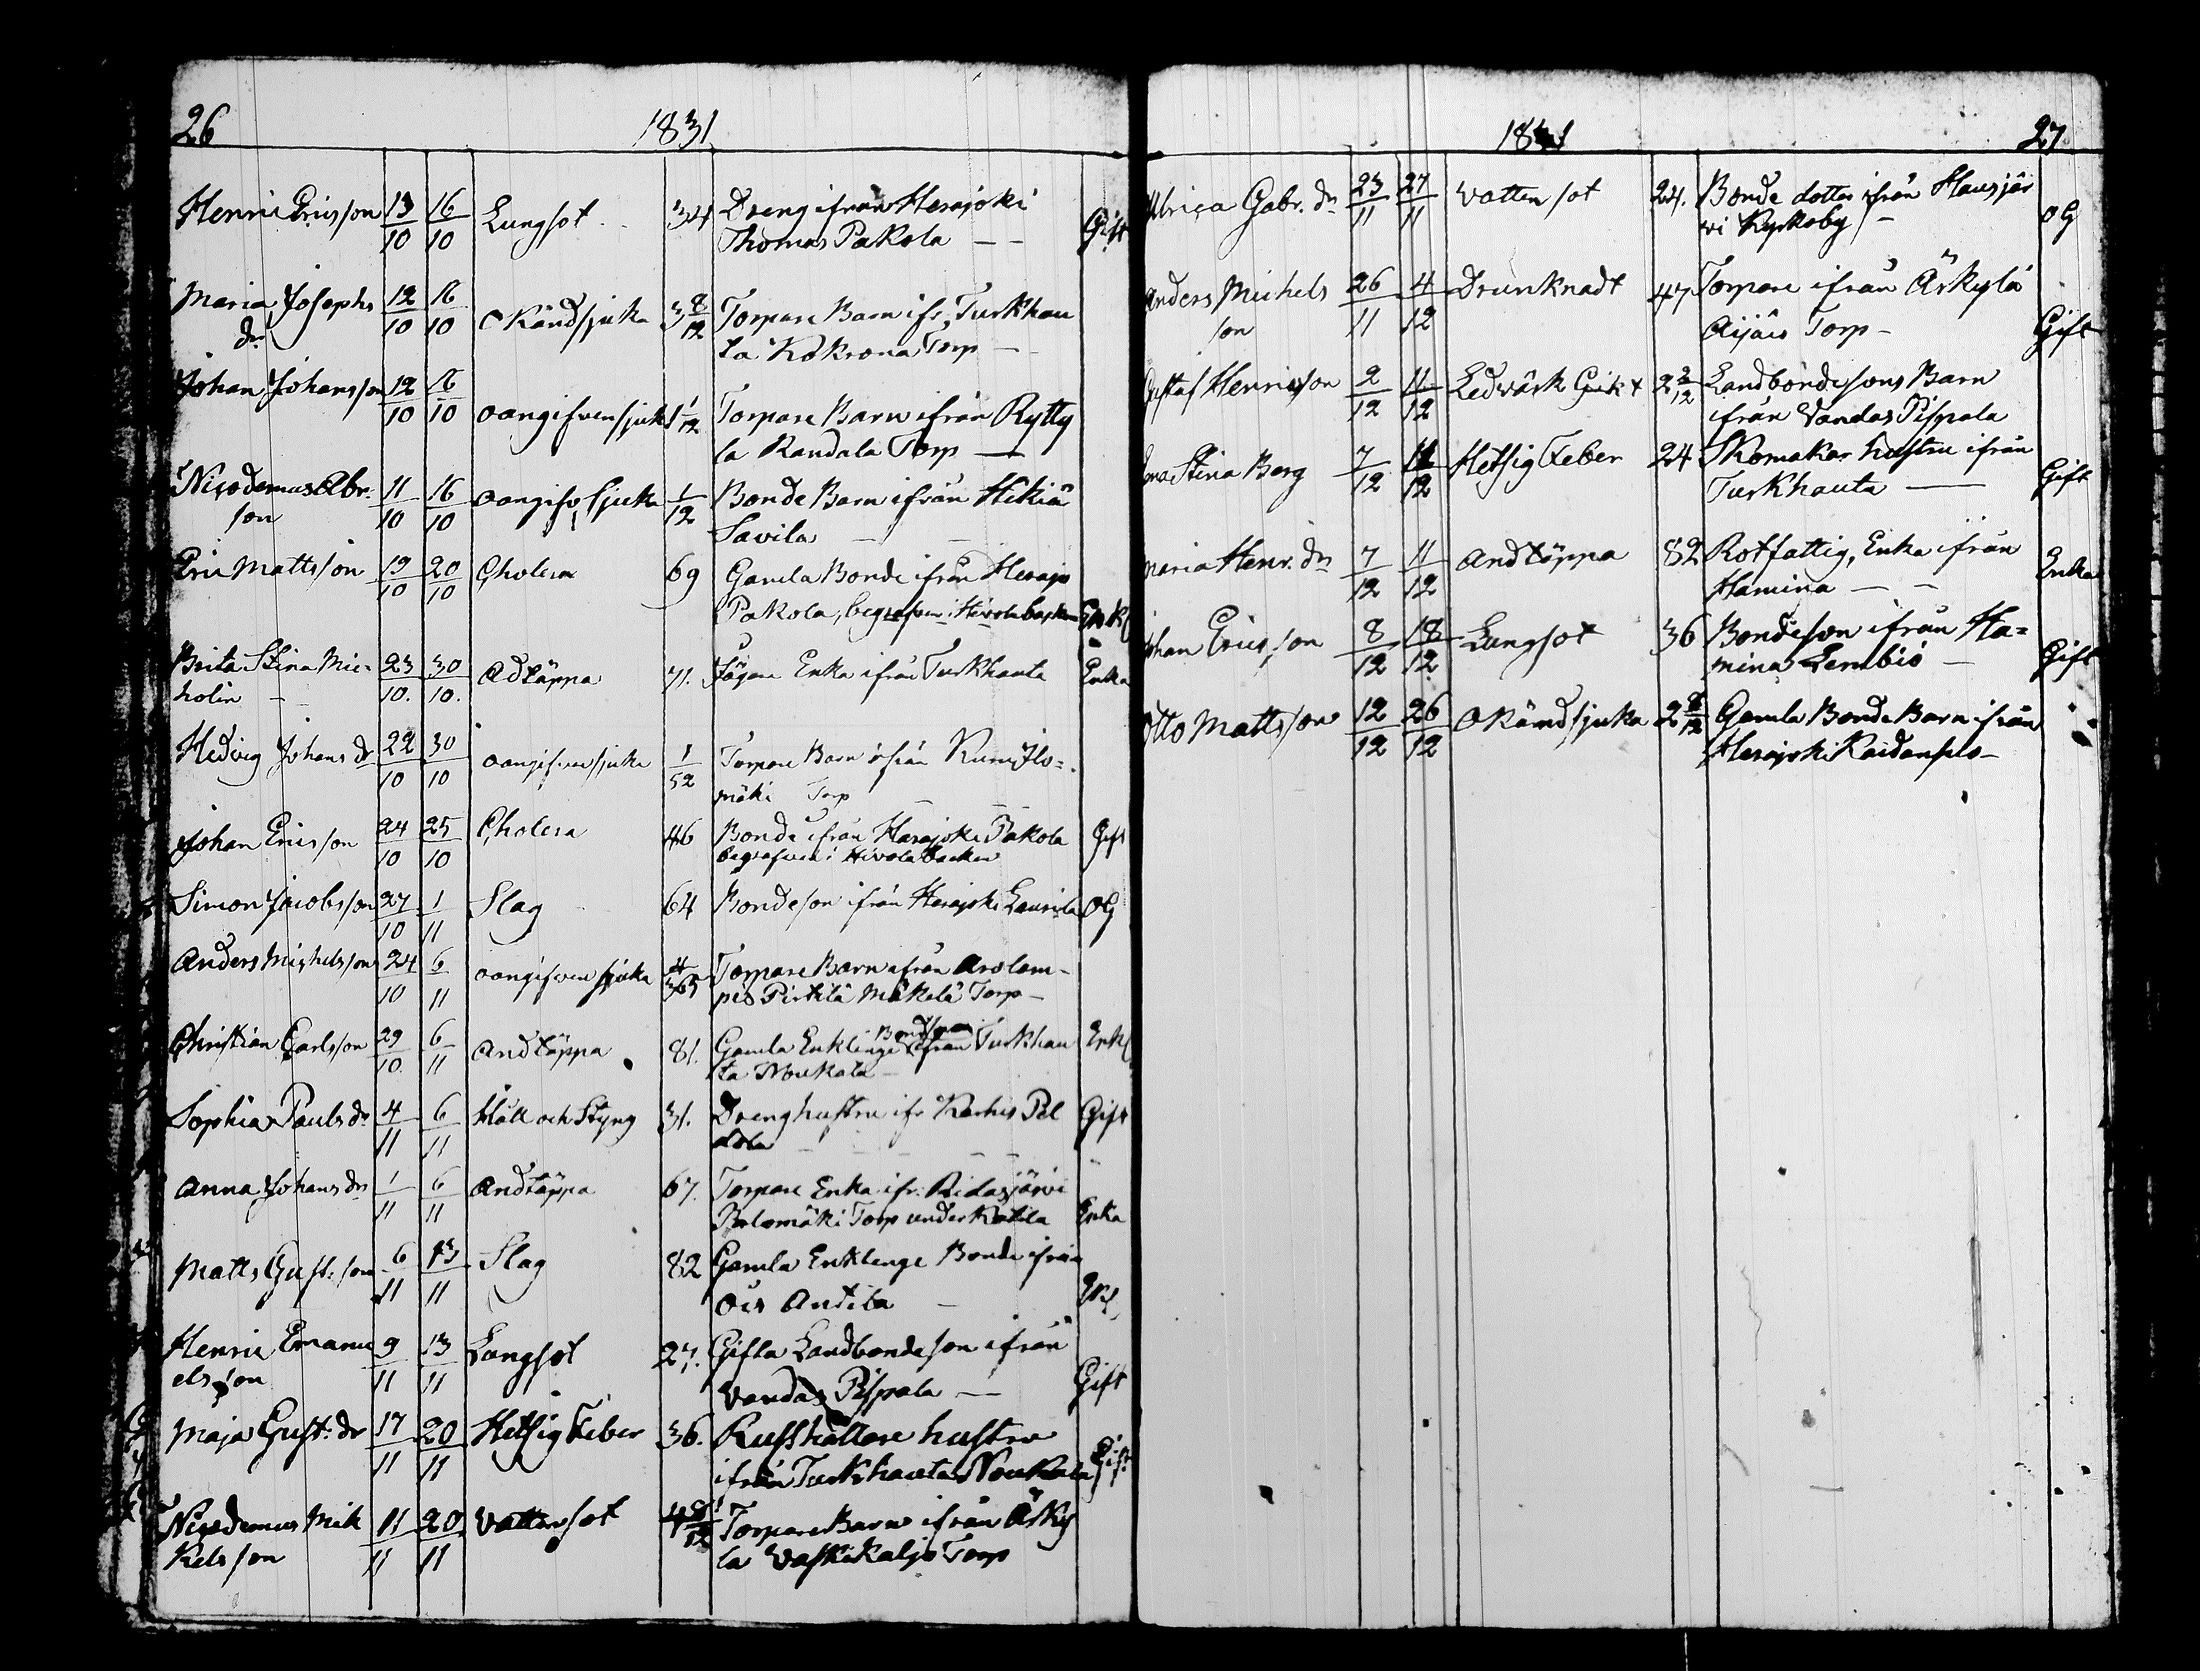 26 1831
Henric Ericsson 13/10 16/10 Lungsot 34 Dreng ifrån Herajoki
Thomas Pakola — — Gift
Maria Josephs 12/10 16/10 Okänd sjuka 3 8/12 Torpare Barn ifr. Turkhau
dr ta Kokrona Torp —
Johan Johansson 12/10 16/10 oangifven sjuk 1 1/12 Torpare Barn ifrån Rytty
la Randala Torp —
Nicodemus Abr. 11/10 16/10 oangifv. sjuka 1/12 Bonde Barn ifrån Hikiä
son Savila —
Eric Mattsson 19/10 20/10 Cholera 69 Gamla Bonde ifrån Herajo
Pakola, begrafven i Hivola backen Enkl
Brita Stina Mic= 23/10. 30/10. Adtäppa 71. Jägare Enka ifrån Turkhauta Enka
holin —
Hedvig Johans dr 22/10 30/10 oangifven sjuka 1/52 Torpare Barn ifrån
mäki Torp
Johan Ericsson 24/10 25/10 Cholera 46 Bonde ifrån Herajoki Pakola Gift
begrafven i Hivola backen
Simon Jacobsson 27/10 1/11 Slag 64 Bondeson ifrån Herajoki Laurila OG
Anders Michelsson 24/10 6/11 oangifven sjuka /365 Torpare Barn ifrån Arolam-
pis Pirtilä Mäkelä Torp —
Christian Carlsson 29/10. 6/11 Andtäppa 81. Gamla Enklinge Bondson ifrån Turkhau Enkl
ta Noukala —
Sophia Pauls dr 4/11 6/11 Håll och Styng 31. Dreng hustru ifr Karhis Pel Gift
dola
Anna Johans dr 1/11 6/11 Andtäppa 67. Torpare Enka ifr. Ridasjärvi
Palomäki Torp under Katila Enka
Matts Gust. son 6/11 13/11 Slag 82 Gamla Enklenge Bonde ifrån
Ois Antila — Enkl
Henric Emanu 9/11 13/11 Lungsot 27. Gifta Landbondeson ifrån
elsson Vandas Pispala — Gift
Maja Gust. dr 17/11 20/11 Hetsig Feber 36. Russhållare hustru
ifrån Turkhauta Noukala Gift
Nicodemus Mik 11/11 20/11 Vattersot 4 /12 Torpare Barn ifrån Äsky
kelsson la Vaskikaljo Torp
1831 27
Ulrica Gabr. dr 23/11 27/11 Vatten sot 24. Bonde dotter ifrån Hausjär
vi Kyrkoby — OG
Anders Michels 26/11 4/12 Drunknadt 47 Torpare ifrån Äskylä
son Aijäis Torp — Gift
Gustaf Henricsson 2/12 11/12 Ledvärk Gikt 2 2/12 Landbondesons Barn
ifrån Vandas Pispala
Stina Berg 7/12 11/12 Hetsig Feber 24 Skomakar hustru ifrån
Turkhauta — Gift
Maria Henr. dr 7/12 11/12 Andtäppa 82 Rotfattig, Enka ifrån
Hamina — — Enka
Johan Ericsson 8/12 18/12 Lungsot 36 Bondeson ifrån Ha=
mina Lembiö — Gift
Otto Mattsson 12/12 26/12 Okänd sjuka 2 /12 Gamla Bonde Barn ifrån
Herajoki Kaidanpes —